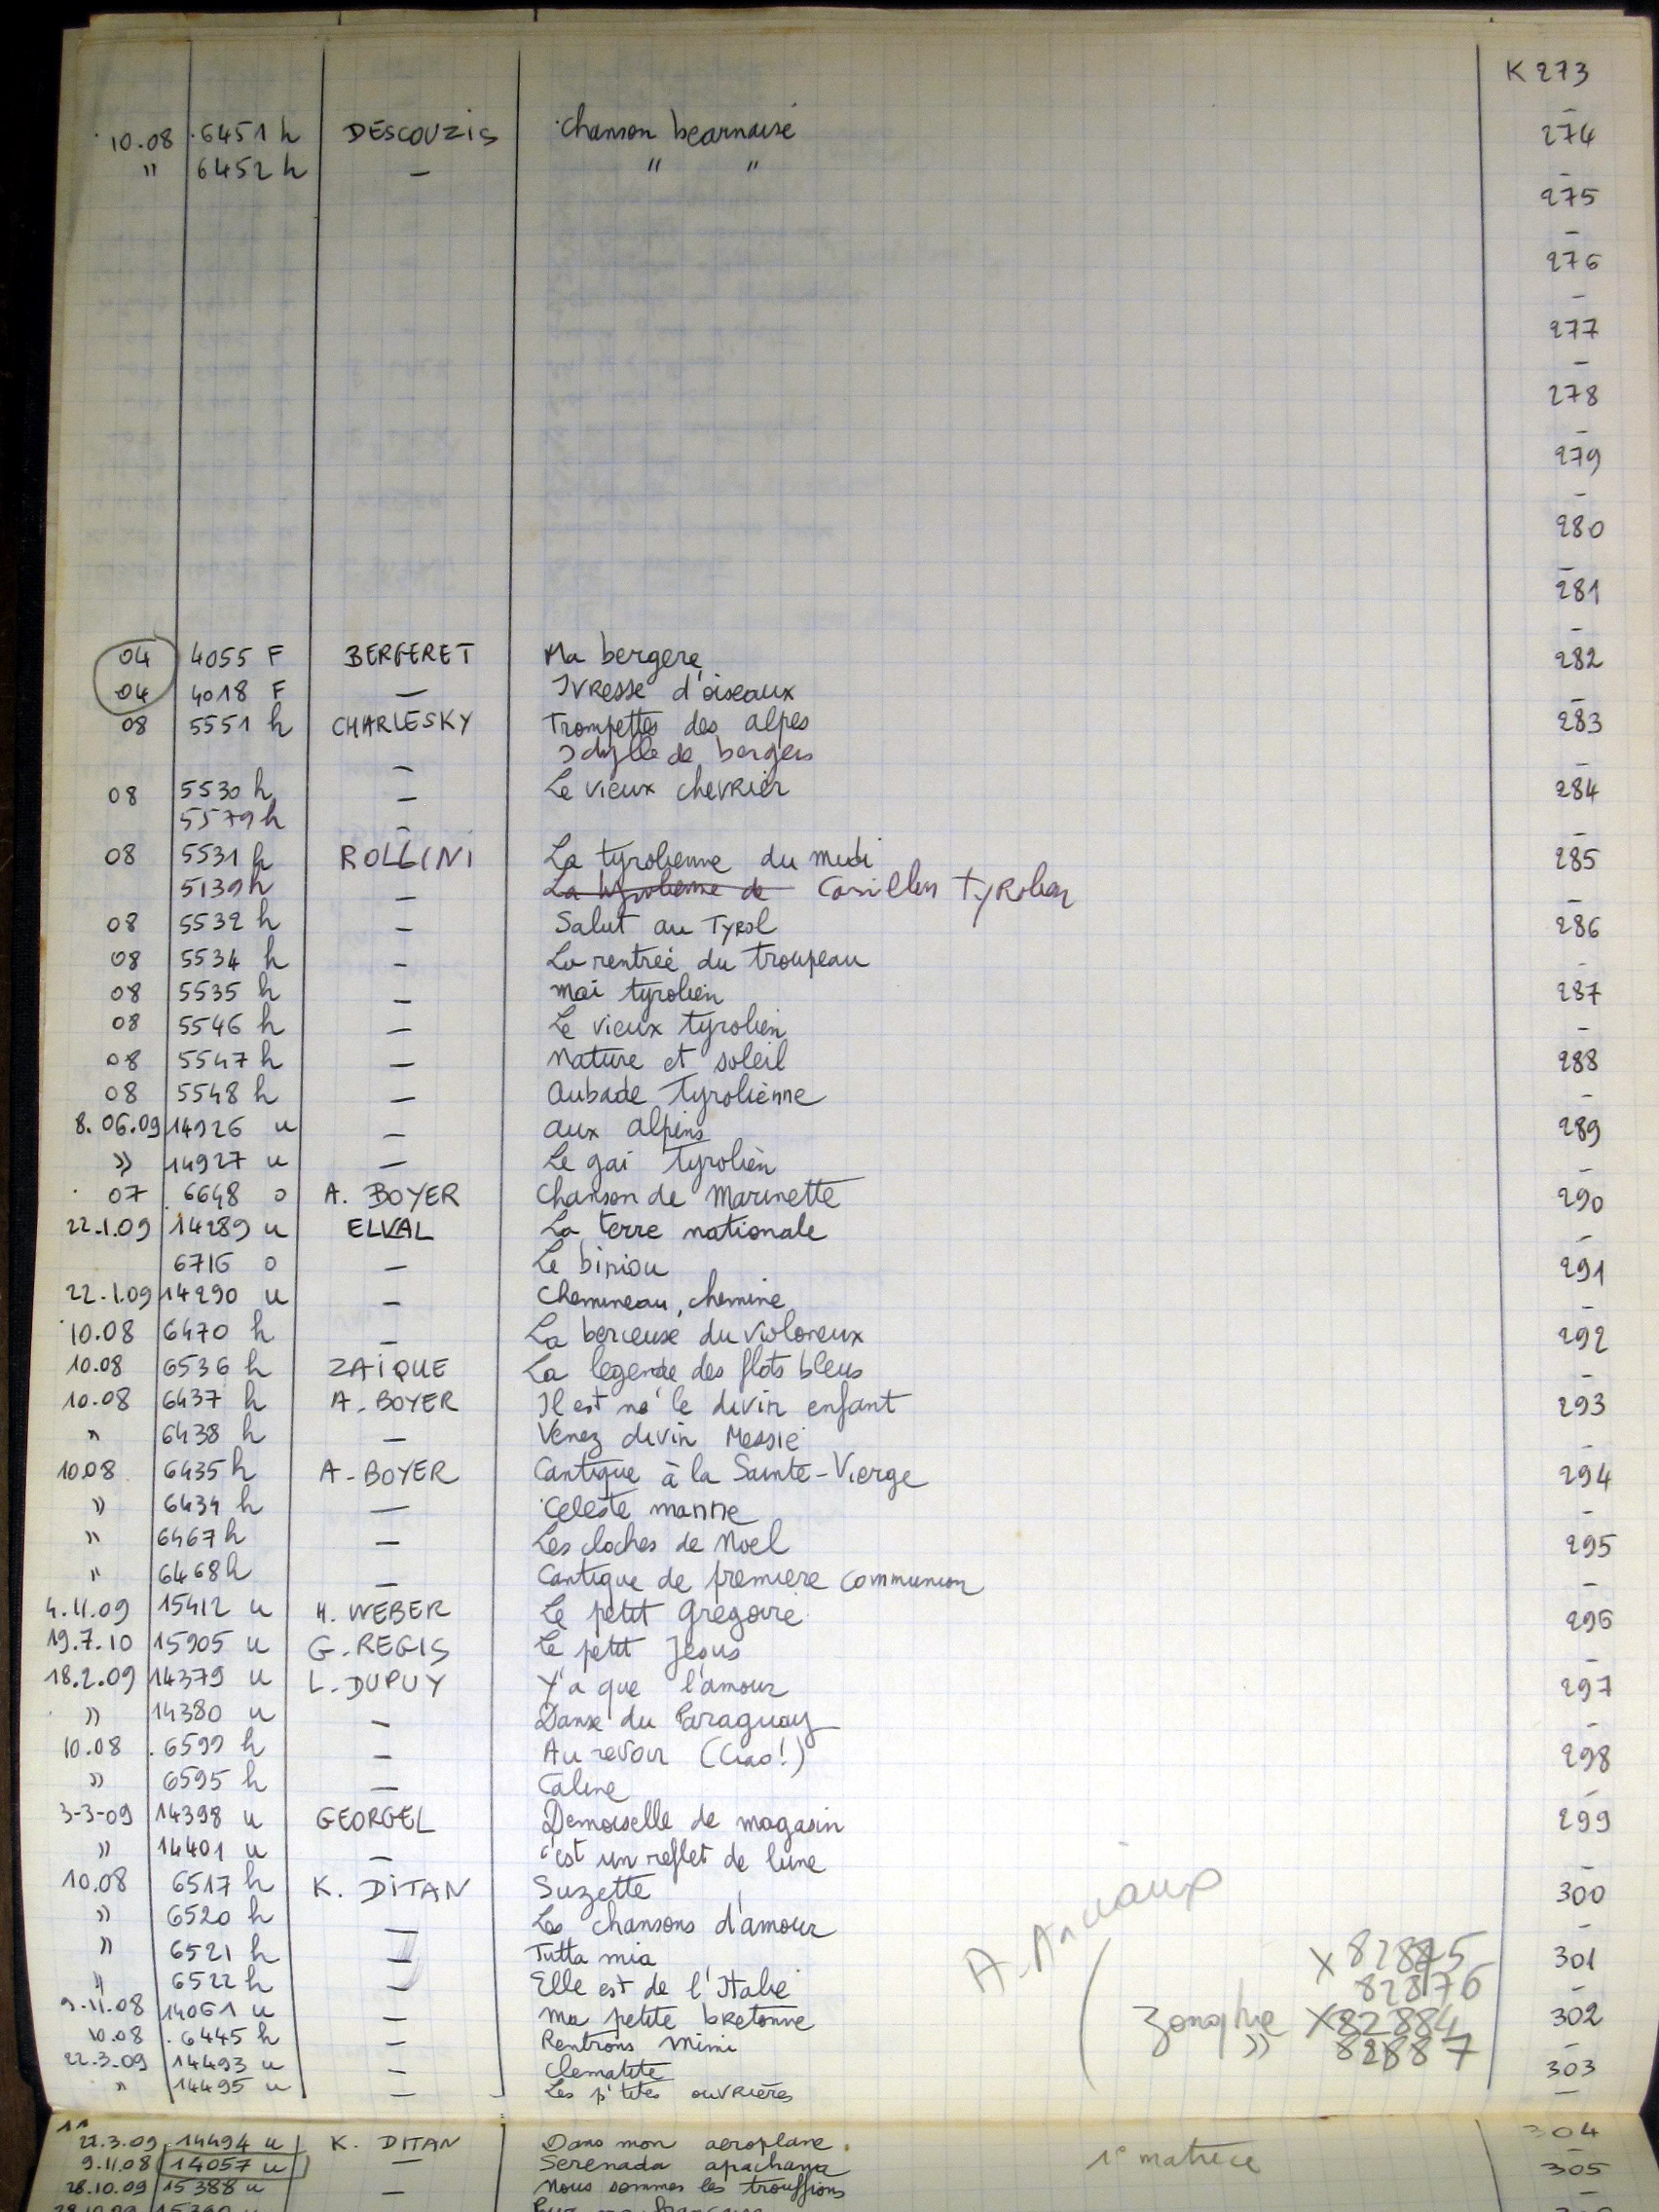 K 273
10.08 6451 h DESCOUZIS Chanson bearnaise 274
" 6452 h — " " —
275
—
276
—
277
—
278
—
279
—
280
—
281
—
04 4055 F BERGERET Ma bergere 282
04 4018 F — Ivresse d'oiseaux —
08 5551 h CHARLESKY Trompettes des alpes 283
— Idylle de bergers —
08 5530 h — Le vieux chevrier 284
5579 h —
08 5531 h ROLLINI La tyrolienne du midi 285
5139 h — La tyrolienne de Carillon Tyrolien —
08 5532 h — Salut au Tyrol 286
08 5534 h — La rentrée du troupeau —
08 5535 h — Mai tyrolien 287
08 5546 h — Le vieux tyrolien —
08 5547 h — Nature et soleil 288
08 5548 h — Aubade Tyrolienne —
8.06.09 14926 u — aux alpins 289
» 14927 u — Le gai Tyrolien —
07 6648 o A. BOYER Chanson de Marinette 290
22.1.09 14289 u ELVAL La terre nationale —
6716 o — Le biniou 291
22.1.09 14290 u — Chemineau, chemine —
10.08 6470 h — La berceuse du violoneux 292
10.08 6536 h ZAÏQUE La legende des flots bleus —
10.08 6437 h A. BOYER Il est né le divin enfant 293
" 6438 h — Venez divin Messie —
10.08 6435 h A. BOYER Cantique à la Sainte-Vierge 294
» 6434 h — Celeste manne —
" 6467 h — Les cloches de Noel 295
" 6468 h — Cantique de premiere communion —
4.11.09 15412 u H. WEBER Le petit Gregoire 296
19.7.10 15905 u G. REGIS Le petit Jesus —
18.2.09 14379 u L. DUPUY Y'a que l'amour 297
» 14380 u — Danse du Paraguay —
10.08 6599 h — Au revoir (Ciao!) 298
» 6595 h — Caline —
3-3-09 14398 u GEORGEL Demoiselle de magasin 299
» 14401 u — C'est un reflet de lune —
10.08 6517 h K. DITAN Suzette 300
» 6520 h — Les chansons d'amour —
» 6521 h — Tutta mia A. X 82875 301
" 6522 h — Elle est de l'Italie 82876 —
9.11.08 14061 u — Ma petite bretonne X 82884 302
10.08 6445 h — Rentrons Mimi » 82887 —
22.3.09 14493 u — Clematite 303
" 14495 u — Les p'tites ouvrières —
22.3.09 14494 u K. DITAN Dans mon aeroplane 304
9.11.08 14057 u — Serenada apachana 1e matrice —
28.10.09 15388 u — Nous sommes les trouffions 305